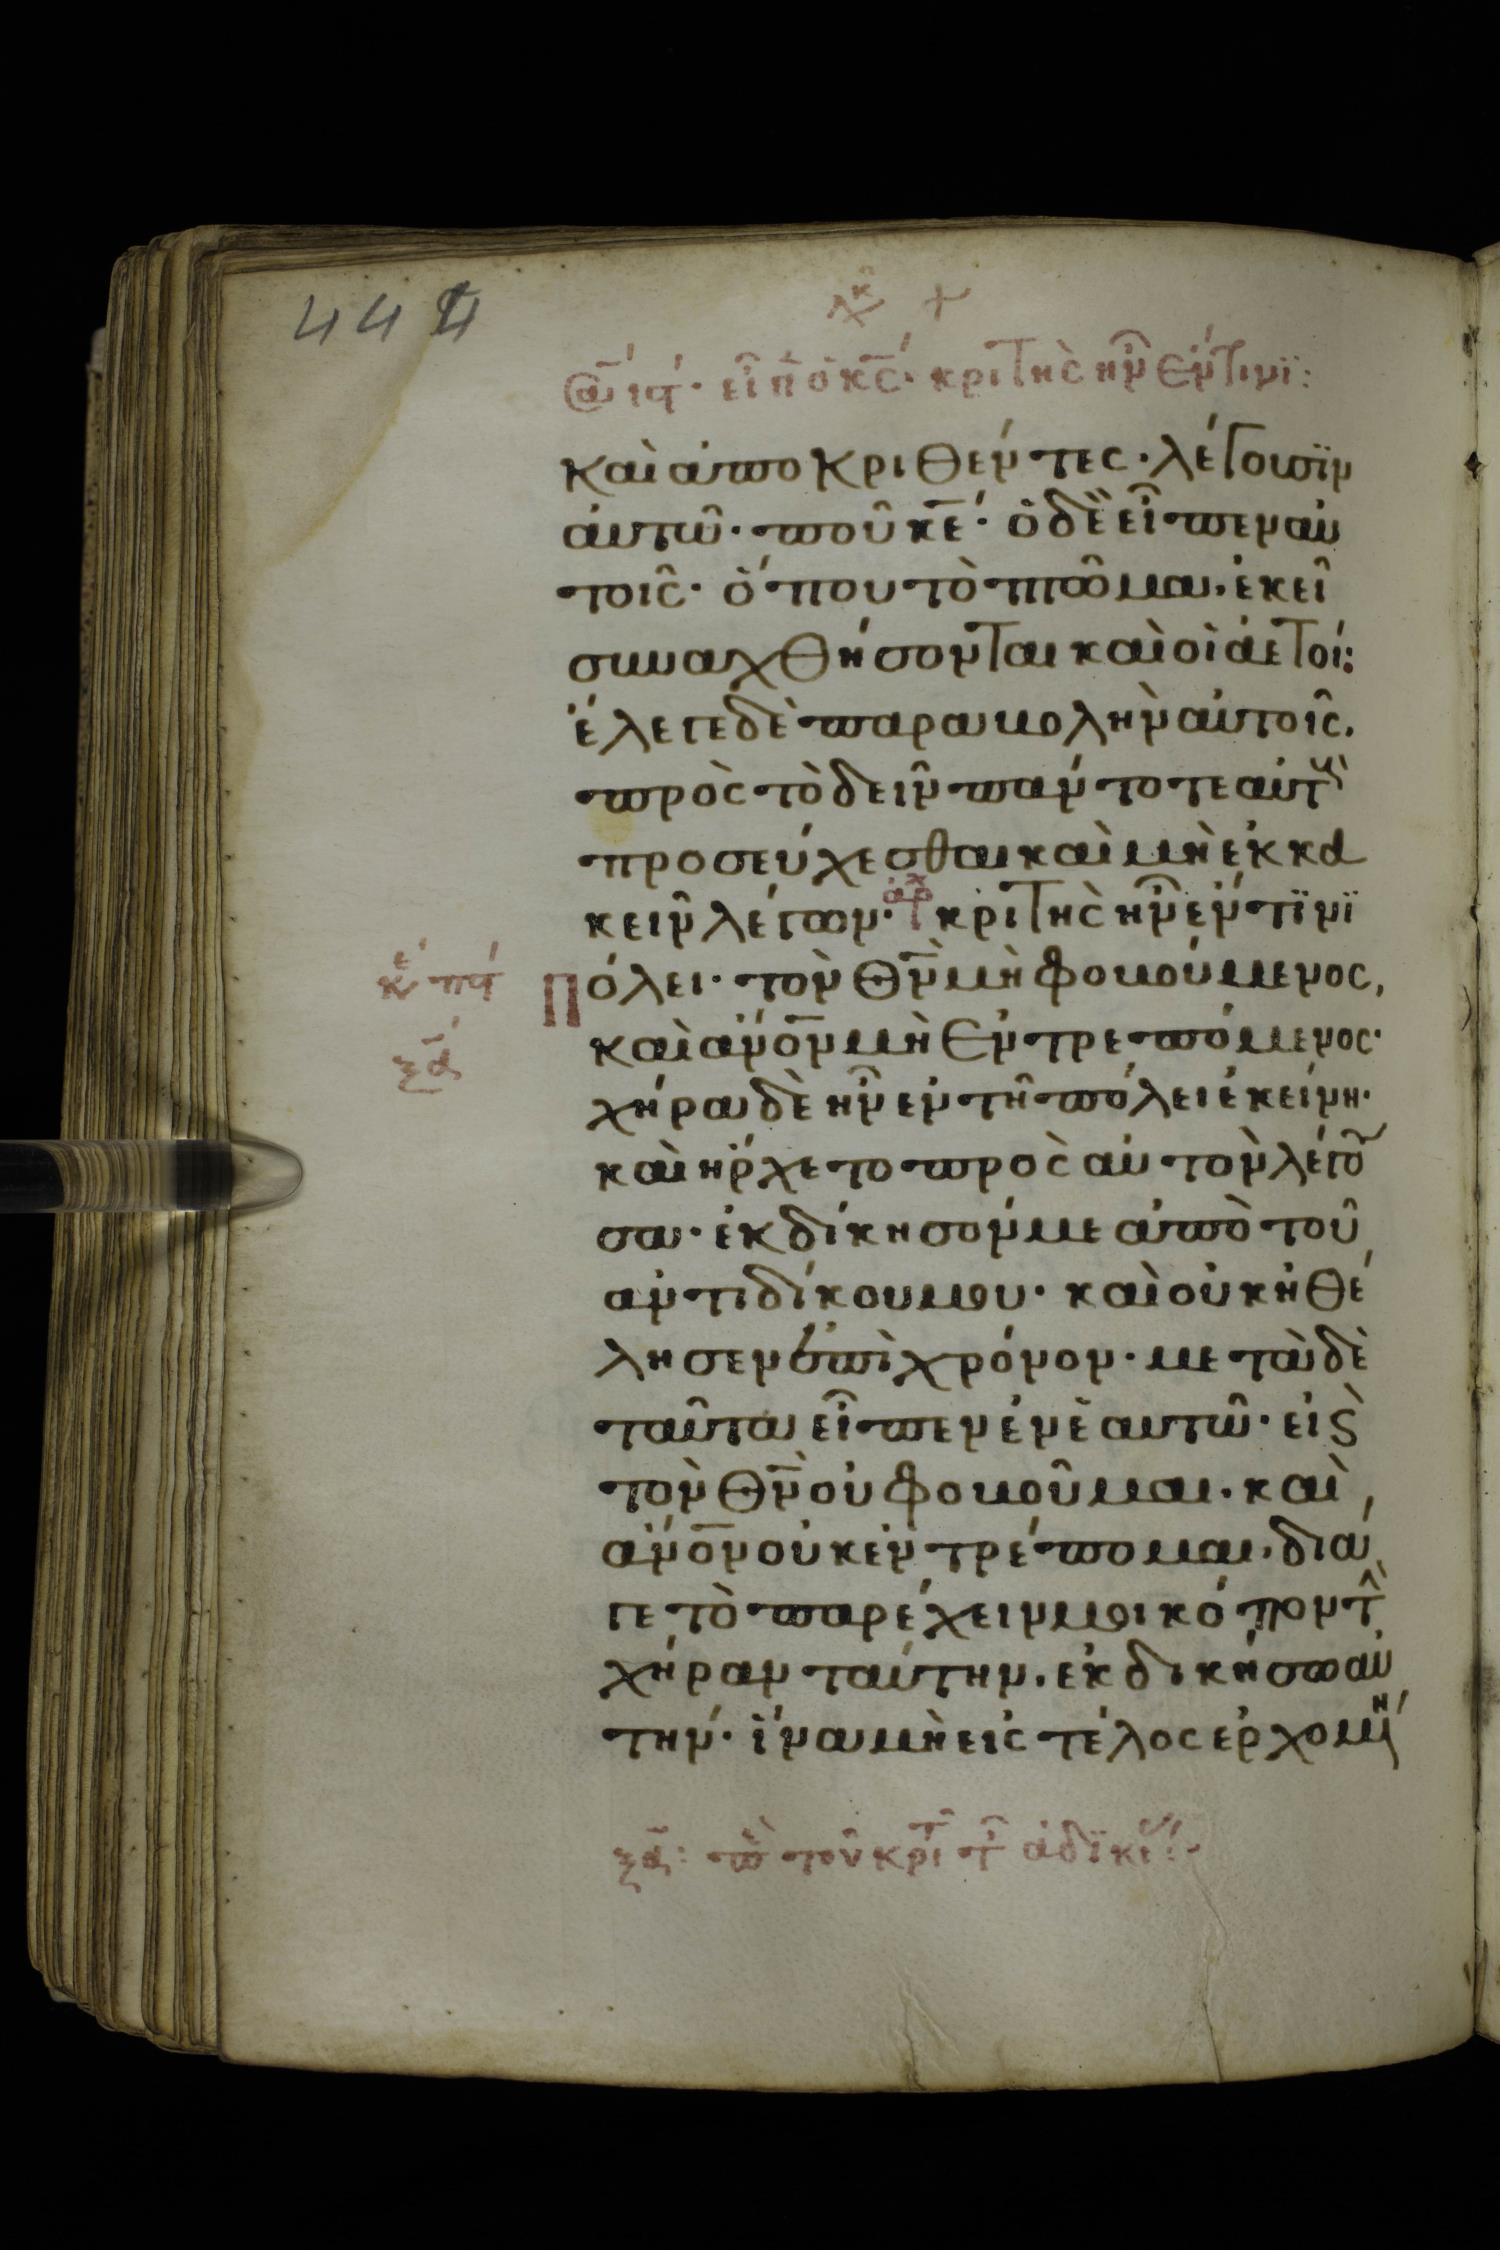 444
εἶπ ὁ κ̅ς̅· κριτὴς ἦν ἔν τινϊ:
καὶ ἀποκριθέντες· λέγουσϊν
ἀυτῶ· ποῦ κ̅ε̅· ὁ δὲ εἶπεν αυ
τοῖς· ὅπου τὸ πτῶμα, ἐκεῖ
συναχθήσονται καὶ οἱ ἀετοί:
ἔλεγε δὲ παραβολὴν αὐτοῖς,
πρὸς τὸ δεῖν πάντοτε αὐτοὺς
προσεύχεσθαι καὶ μὴ ἐκκα
κεῖν λέγων· κριτὴς ἦν ἔν τϊνϊ
πόλει· τὸν θ̅ν̅ μὴ φοβούμενος,
καὶ ἄν̅ο̅ν̅ μὴ ἐντρεπόμενος·
χήρα δὲ ἦν ἐν τῆ πόλει ἐκείνη·
καὶ ἤρχετο πρὸς αὐτὸν λέγου
σα· ἐκδίκησόν με ἀπὸ τοῦ
ἀντιδίκου μου· καὶ οὐκ ἠθέ
λησεν ἐπὶ χρόνον· μετὰ δὲ
ταῦτα εἶπεν ἐνὲ αυτῶ· εἰ ς
τὸν θ̅ν̅ οὐ φοβοῦμαι· καὶ
ἄν̅ο̅ν̅ οὐκ ἐντρέπομαι, διά
γε τὸ παρέχειν μοι κόπον τὴν
χήραν ταύτην, ἐκδικήσω αὐ
τήν· ἵνα μὴ εἰς τέλος ἐρχομένη
ξ̅α̅: π τοῦ κριτ τ ἀδϊκί